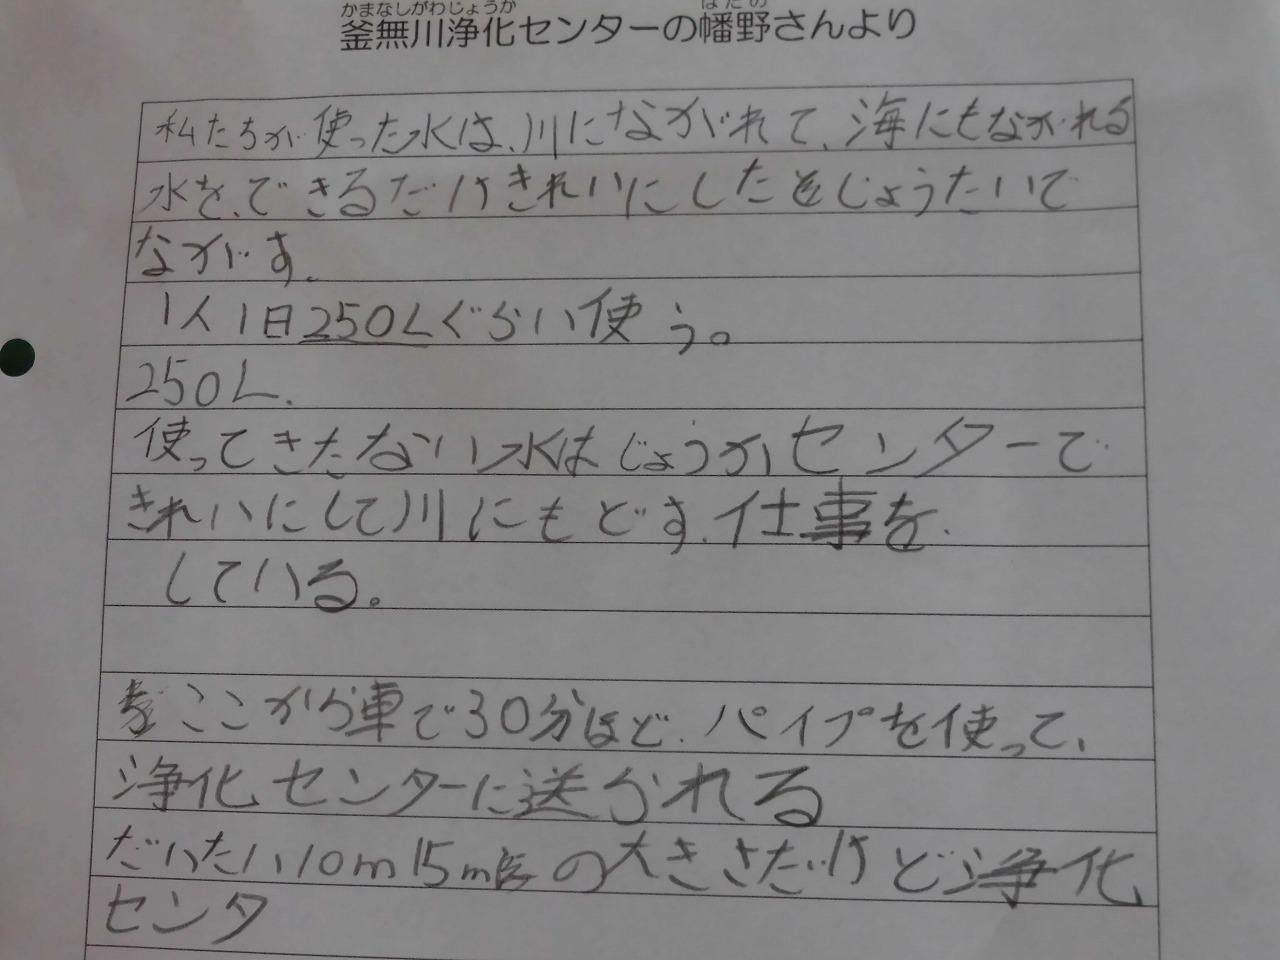 かまなしがわじょうか はたの
釜無川浄化センターの幡野さんより
私たちが使った水は、川にながれて、海にもながれる
水を、できるだけきれいにしたじょうたいで
ながす。
1人1日250Lぐらい使う。
250L.
使ってきたない水はじょうかセンターで
きれいにして川にもどす。仕事を
している。
ここから車で30分ほど、パイプを使って、
浄化センターに送られる
だいたい10m15mの大きさだけど浄化
センタ